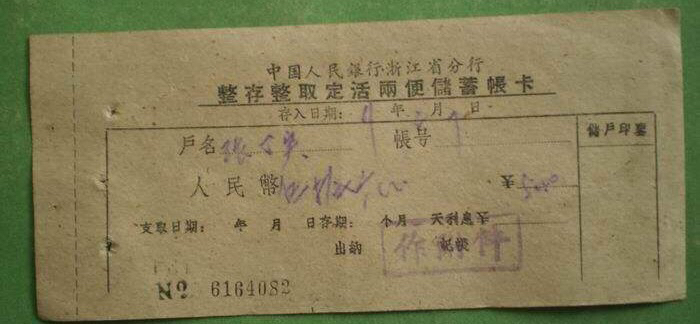 中国人民銀行浙江省分行
整存整取定活兩便儲蓄帳卡
存入日期： 年 月 日
戶名 張 帳号 儲戶印鑒
人民幣 ￥
支取日期： 年 月 日存期： 个月 天利息￥
出納 記帳
作附件
№ 6164082